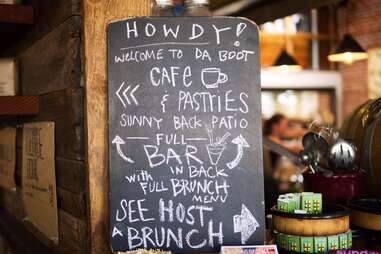 HOWDY!
WELCOME TO DA BOOT
CAFE
& PASTRIES
SUNNY BACK PATIO
FULL
BAR
IN BACK
WITH
FULL BRUNCH
MENU
SEE HOST
A BRUNCH